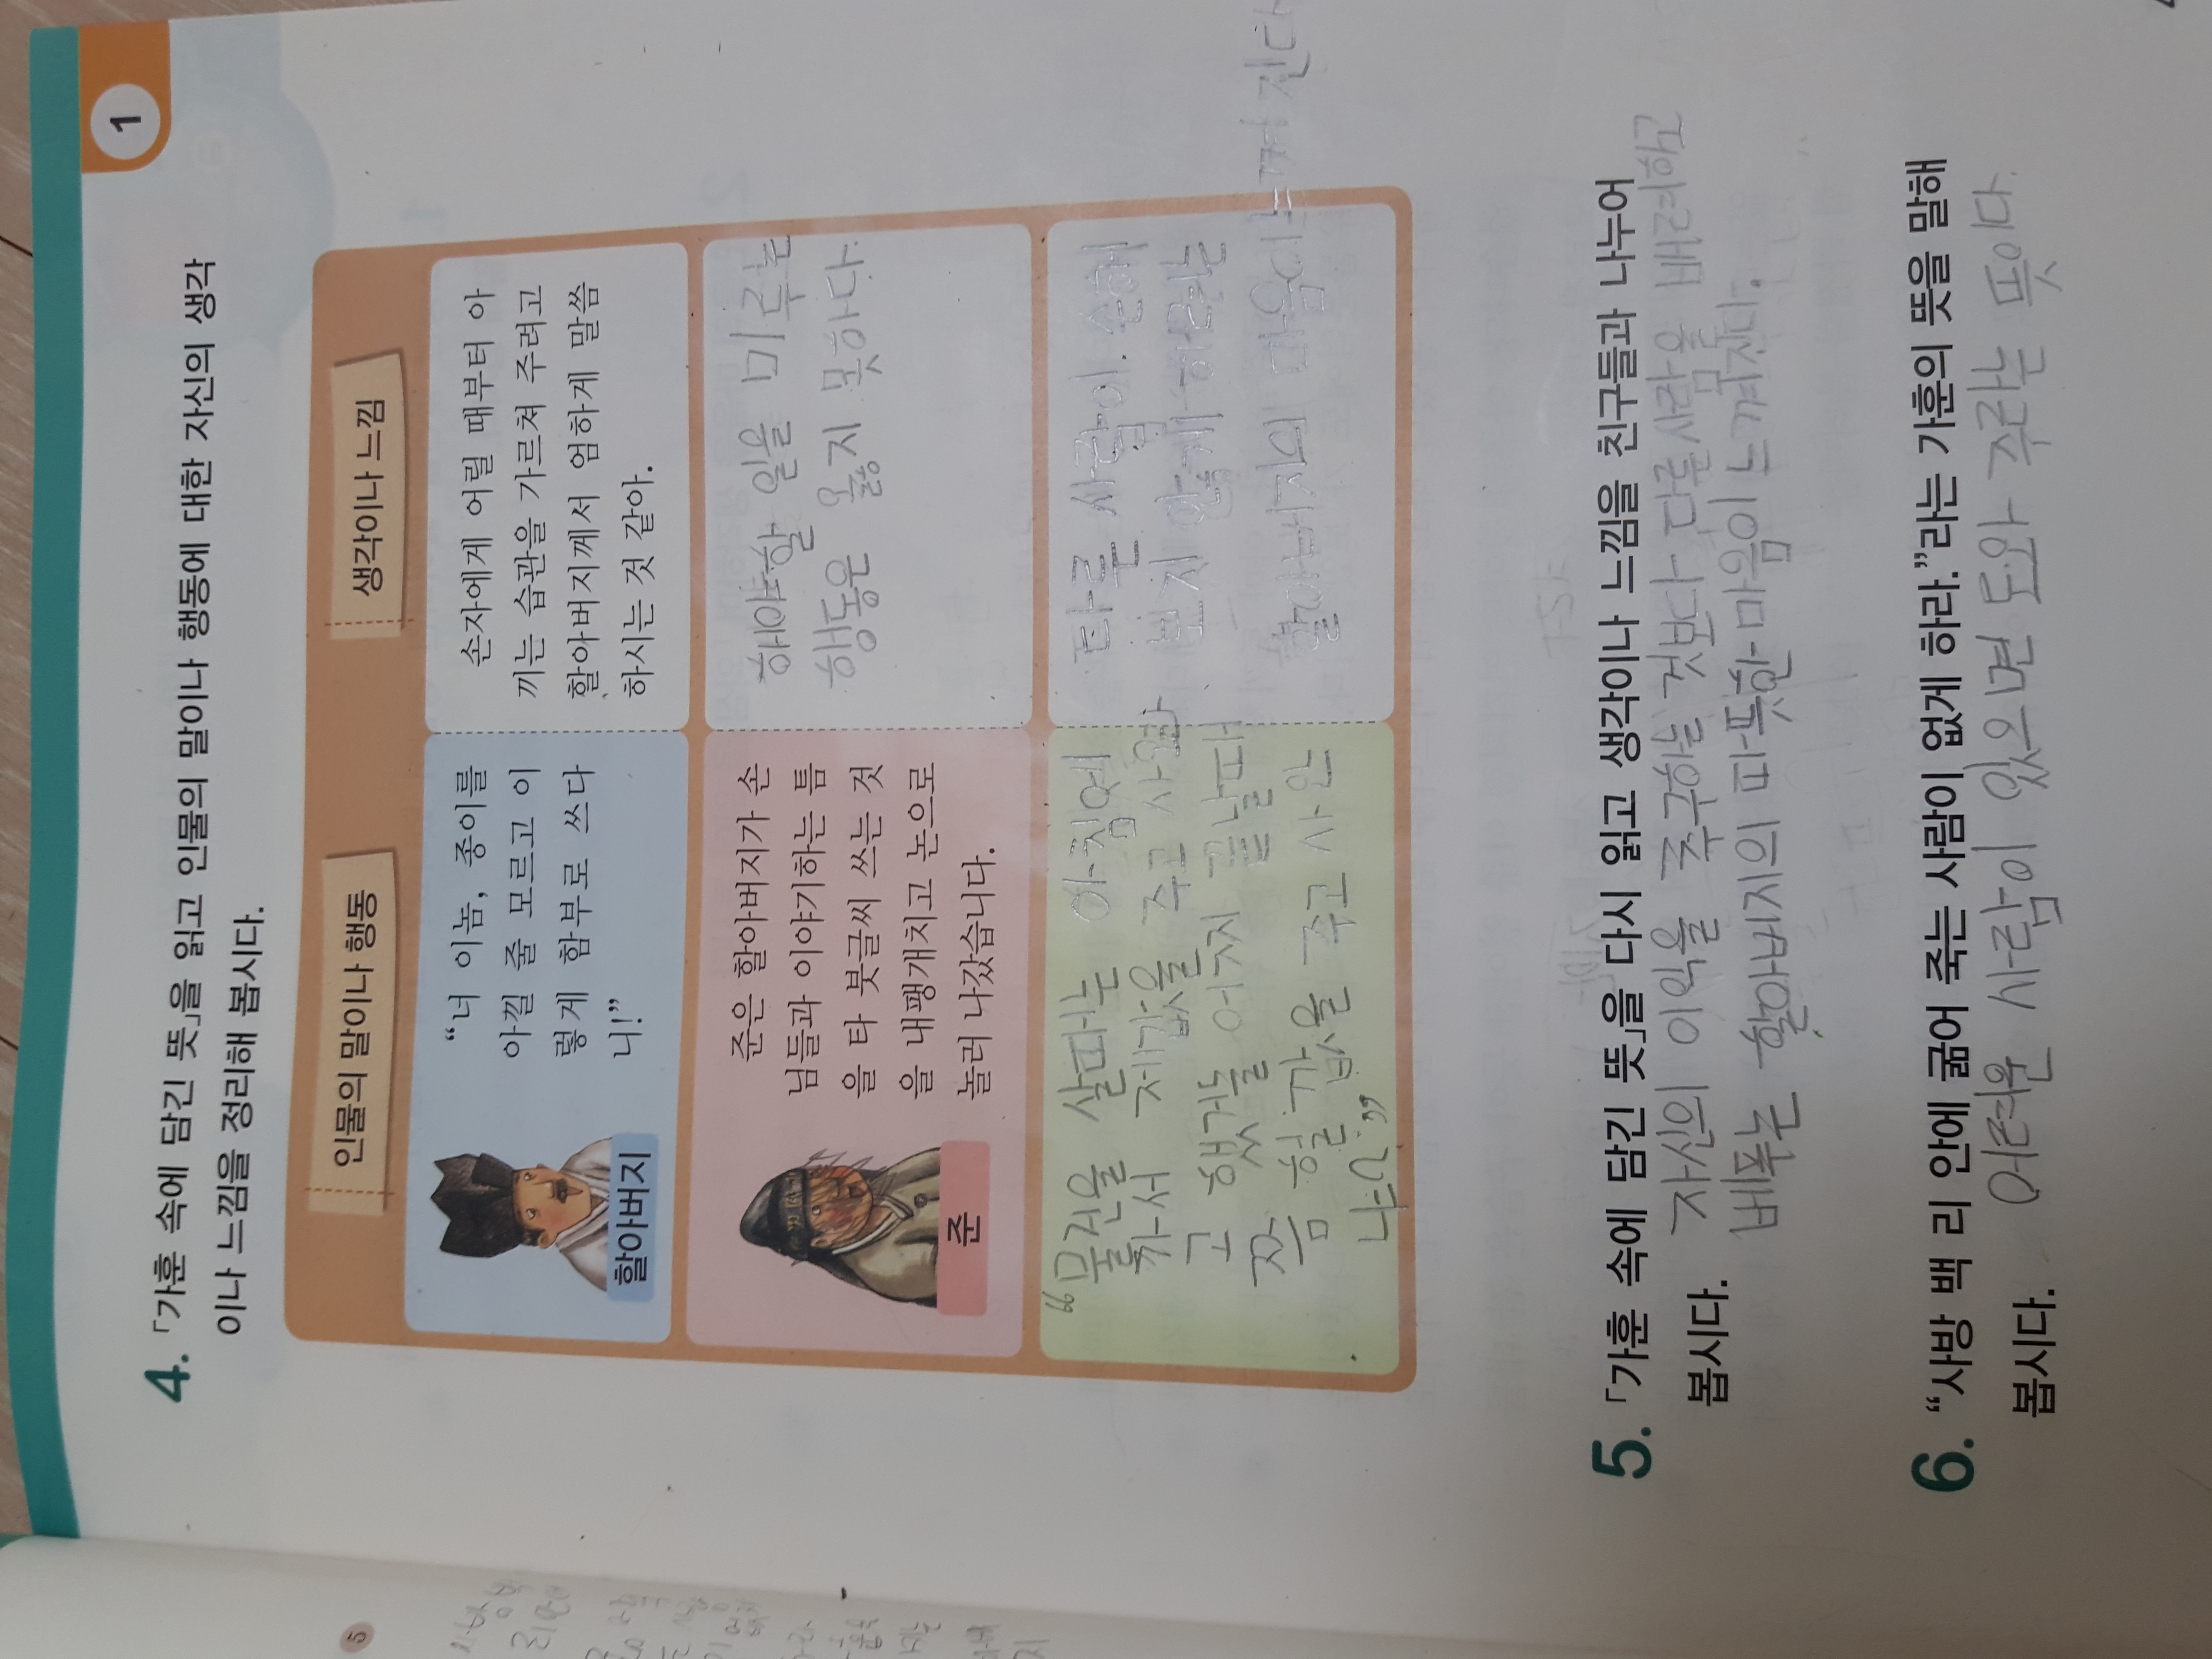 1
4. 「가훈 속에 담긴 뜻」을 읽고 인물의 말이나 행동에 대한 자신의 생각
이나 느낌을 정리해 봅시다.
인물의 말이나 행동
생각이나 느낌
할아버지
“너 이놈, 종이를
아낄 줄 모르고 이
렇게 함부로 쓰다
니!”
손자에게 어릴 때부터 아
끼는 습관을 가르쳐 주려고
할아버지께서 엄하게 말씀
하시는 것 같아.
준
준은 할아버지가 손
님들과 이야기하는 틈
을 타 붓글씨 쓰는 것
을 내팽개치고 논으로
놀러 나갔습니다.
해야할 일을 미루는
행동은 옳지 못하다.
“물건을 살때는 아침에
가서 제값을 주고 사오라
고 했거늘 어찌 끝날때
쯤 헐값을 주고 사 왔
냐?”
타른 사람이 손해
보지 않게 하려는
할아버지의 마음이 느껴 진다
5. 「가훈 속에 담긴 뜻」을 다시 읽고 생각이나 느낌을 친구들과 나누어
봅시다. 자신의 이익을 추구하는 것보다 다른사람을 배려하고
베푸는 할아버지의 따뜻한 마음이 느껴진다.
6. “사방 백 리 안에 굶어 죽는 사람이 없게 하라.”라는 가훈의 뜻을 말해
봅시다. 어려운 사람이 있으면 도와 주라는 뜻이다.
5